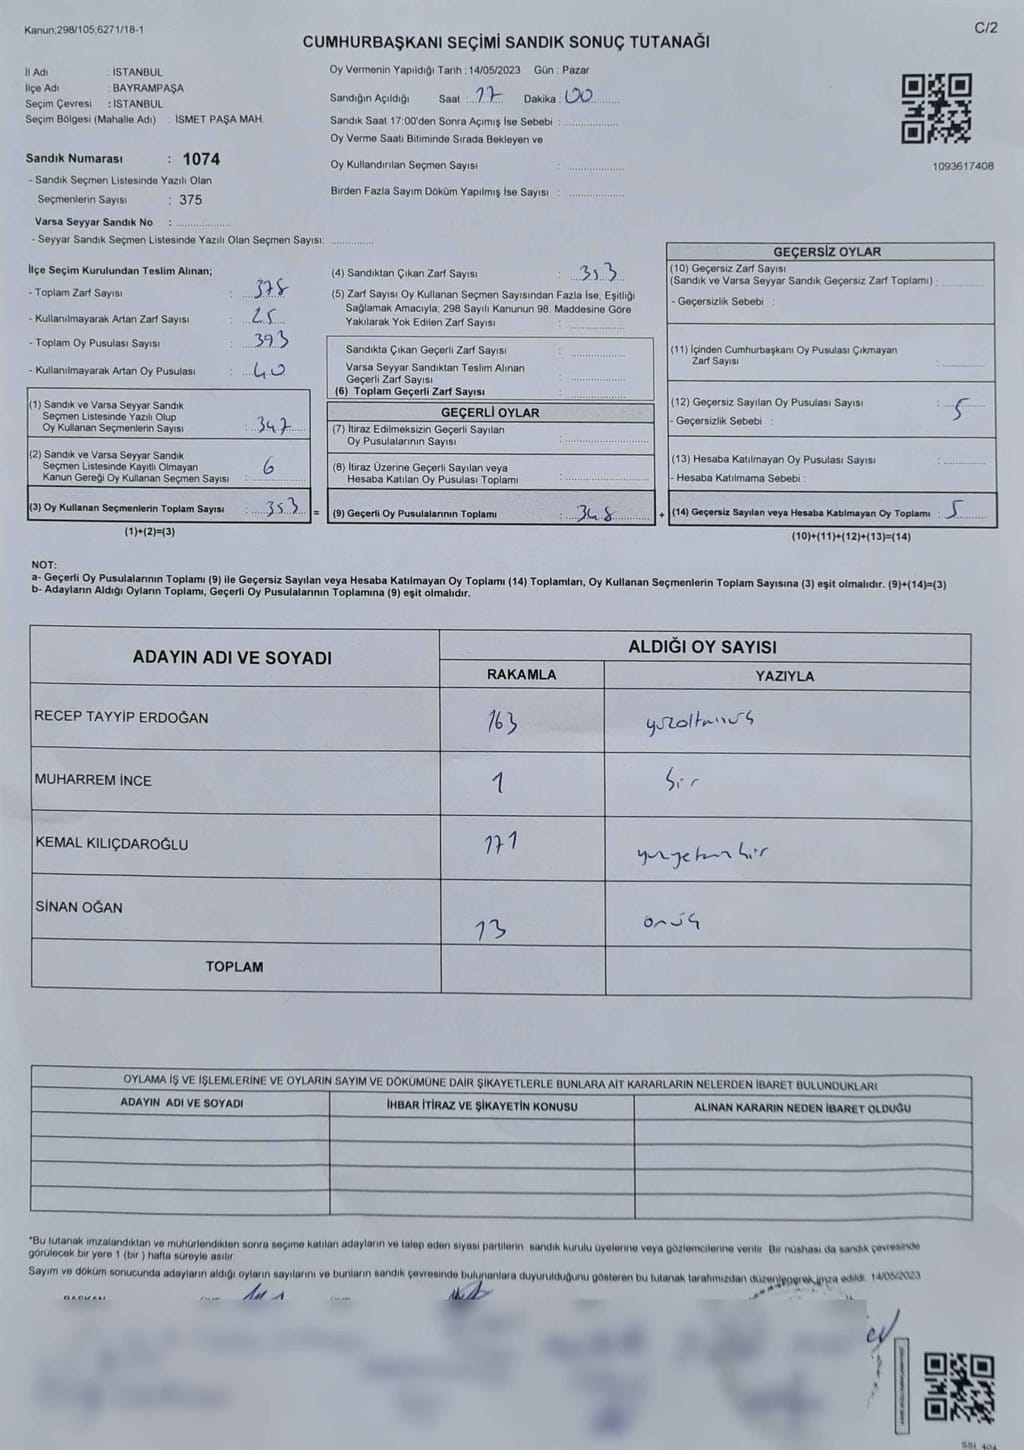 Kanun;298/105;6271/18-1
C/2
CUMHURBAŞKANI SEÇİMİ SANDIK SONUÇ TUTANAĞI
İl Adı : İSTANBUL
İlçe Adı : BAYRAMPAŞA
Seçim Çevresi : İSTANBUL
Seçim Bölgesi (Mahalle Adı) : İSMET PAŞA MAH.
Sandık Numarası : 1074
- Sandık Seçmen Listesinde Yazılı Olan
Seçmenlerin Sayısı : 375
Varsa Seyyar Sandık No : ..................
- Seyyar Sandık Seçmen Listesinde Yazılı Olan Seçmen Sayısı: ..............
Oy Vermenin Yapıldığı Tarih : 14/05/2023 Gün : Pazar
Sandığın Açıldığı Saat : 17 Dakika : 00
Sandık Saat 17:00'den Sonra Açımış İse Sebebi : ..................
Oy Verme Saati Bitiminde Sırada Bekleyen ve
Oy Kullandırılan Seçmen Sayısı : ..................
Birden Fazla Sayım Döküm Yapılmış İse Sayısı : ..................
1093617408
İlçe Seçim Kurulundan Teslim Alınan;
- Toplam Zarf Sayısı : 378
- Kullanılmayarak Artan Zarf Sayısı : 25
- Toplam Oy Pusulası Sayısı : 393
- Kullanılmayarak Artan Oy Pusulası : 40
(1) Sandık ve Varsa Seyyar Sandık
Seçmen Listesinde Yazılı Olup
Oy Kullanan Seçmenlerin Sayısı : 347
(2) Sandık ve Varsa Seyyar Sandık
Seçmen Listesinde Kayıtlı Olmayan
Kanun Gereği Oy Kullanan Seçmen Sayısı : 6
(3) Oy Kullanan Seçmenlerin Toplam Sayısı : 353 =
(1)+(2)=(3)
(4) Sandıktan Çıkan Zarf Sayısı : 353
(5) Zarf Sayısı Oy Kullanan Seçmen Sayısından Fazla İse, Eşitliği
Sağlamak Amacıyla, 298 Sayılı Kanunun 98. Maddesine Göre
Yakılarak Yok Edilen Zarf Sayısı : ..................
Sandıkta Çıkan Geçerli Zarf Sayısı : ..................
Varsa Seyyar Sandıktan Teslim Alınan
Geçerli Zarf Sayısı : ..................
(6) Toplam Geçerli Zarf Sayısı : ..................
GEÇERLİ OYLAR
(7) İtiraz Edilmeksizin Geçerli Sayılan
Oy Pusulalarının Sayısı : ..................
(8) İtiraz Üzerine Geçerli Sayılan veya
Hesaba Katılan Oy Pusulası Toplamı : ..................
(9) Geçerli Oy Pusulalarının Toplamı : 348 +
GEÇERSİZ OYLAR
(10) Geçersiz Zarf Sayısı
(Sandık ve Varsa Seyyar Sandık Geçersiz Zarf Toplamı) : ..................
- Geçersizlik Sebebi :
(11) İçinden Cumhurbaşkanı Oy Pusulası Çıkmayan
Zarf Sayısı : ..................
(12) Geçersiz Sayılan Oy Pusulası Sayısı : 5
- Geçersizlik Sebebi :
(13) Hesaba Katılmayan Oy Pusulası Sayısı : ..................
- Hesaba Katılmama Sebebi :
(14) Geçersiz Sayılan veya Hesaba Katılmayan Oy Toplamı : 5
(10)+(11)+(12)+(13)=(14)
NOT:
a- Geçerli Oy Pusulalarının Toplamı (9) ile Geçersiz Sayılan veya Hesaba Katılmayan Oy Toplamı (14) Toplamları, Oy Kullanan Seçmenlerin Toplam Sayısına (3) eşit olmalıdır. (9)+(14)=(3)
b- Adayların Aldığı Oyların Toplamı, Geçerli Oy Pusulalarının Toplamına (9) eşit olmalıdır.
ADAYIN ADI VE SOYADI
ALDIĞI OY SAYISI
RAKAMLA YAZIYLA
RECEP TAYYİP ERDOĞAN 163 yüzaltmışüç
MUHARREM İNCE 1 bir
KEMAL KILIÇDAROĞLU 171 yüzyetmişbir
SİNAN OĞAN 13 onüç
TOPLAM
OYLAMA İŞ VE İŞLEMLERİNE VE OYLARIN SAYIM VE DÖKÜMÜNE DAİR ŞİKAYETLERLE BUNLARA AİT KARARLARIN NELERDEN İBARET BULUNDUKLARI
ADAYIN ADI VE SOYADI İHBAR İTİRAZ VE ŞİKAYETİN KONUSU ALINAN KARARIN NEDEN İBARET OLDUĞU
*Bu tutanak imzalandıktan ve mühürlendikten sonra seçime katılan adayların ve talep eden siyasi partilerin sandık kurulu üyelerine veya gözlemcilerine verilir. Bir nüshası da sandık çevresinde
görülecek bir yere 1 (bir) hafta süreyle asılır.
Sayım ve döküm sonucunda adayların aldığı oyların sayılarını ve bunların sandık çevresinde bulunanlara duyurulduğunu gösteren bu tutanak tarafımızdan düzenlenerek imza edildi. 14/05/2023
BAŞKAN